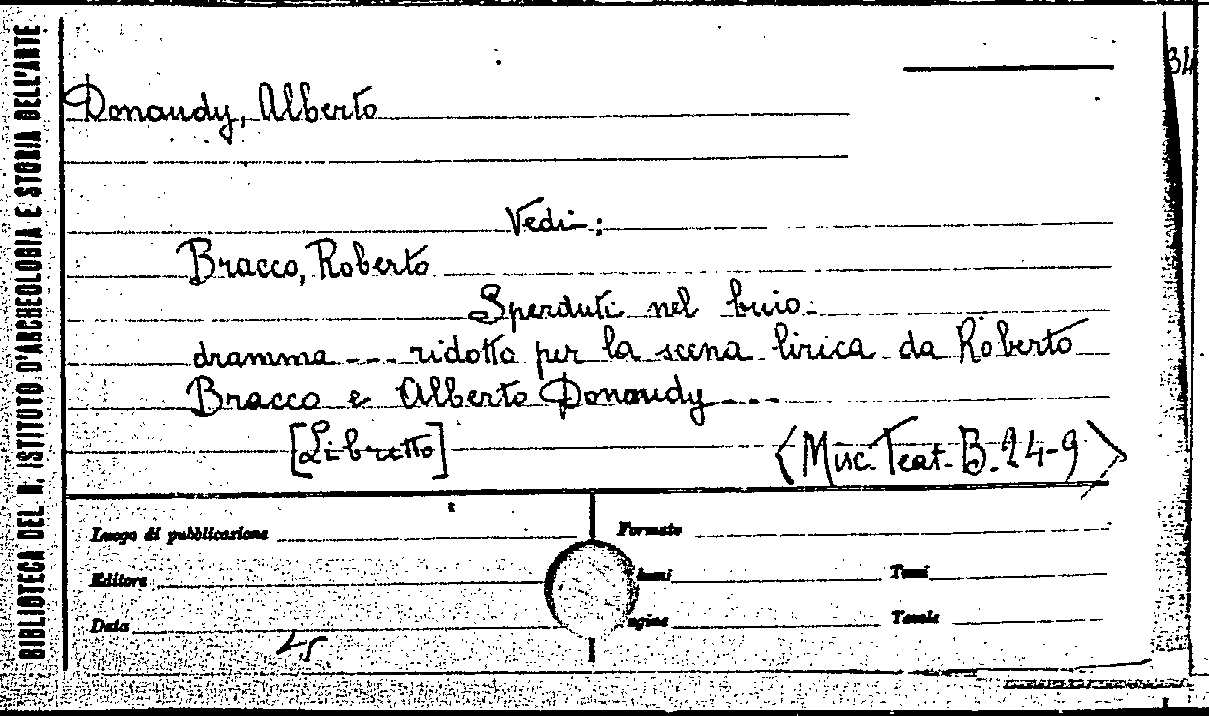 BIBLIOTECA DEL R. ISTITUTO D'ARCHEOLOGIA E STORIA DELL'ARTE
34
Donaudy, Alberto
Vedi:
Bracco, Roberto
Sperduti nel buio.
dramma --- ridotto per la scena lirica da Roberto
Bracco e Alberto Donaudy ---
[Libretto]
<Misc. Teat. B. 24-9>
Luogo di pubblicazione
Formato
Editore
Tomi
Data
Tavole